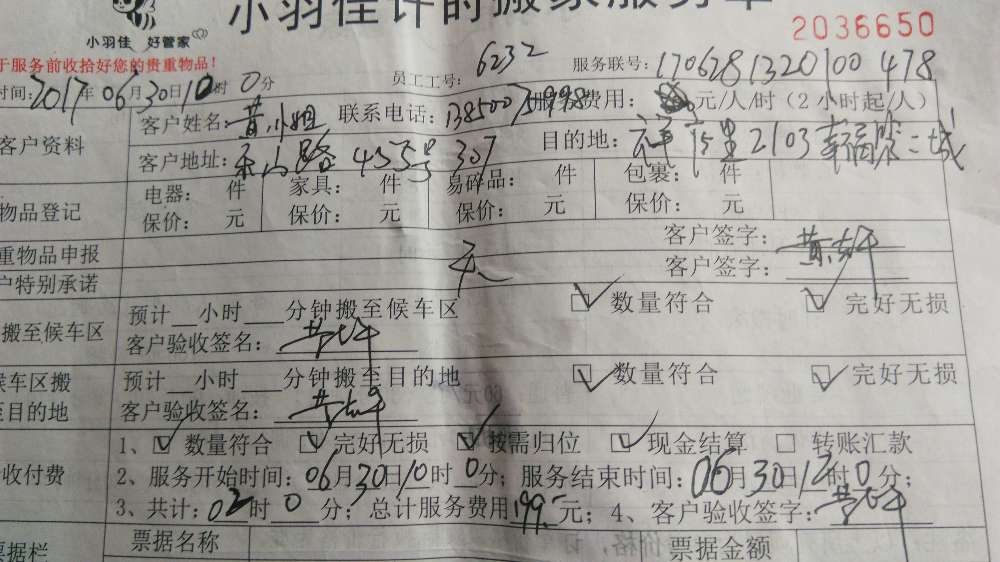 小羽佳计时搬家服务单
小羽佳 好管家
2036650
于服务前收拾好您的贵重物品！
员工工号：6232
服务联号：170628132010 0478
时间：2017年06月30日10时0分
客户资料
客户姓名：黄小姐
联系电话：
服务费用：
元/人/时（2小时起/人）
客户地址：
路 455号307
目的地：
2103幸福
二城
物品登记
电器： 件 家具： 件 易碎品： 件 包裹： 件
保价： 元 保价： 元 保价： 元 保价： 元
重物品申报
客户签字：
户特别承诺
无
客户签字：
搬至候车区
预计__小时___分钟搬至候车区
数量符合 完好无损
客户验收签名：
候车区搬
至目的地
预计__小时___分钟搬至目的地
数量符合 完好无损
客户验收签名：
收付费
1、 数量符合 完好无损 按需归位 现金结算 转账汇款
2、服务开始时间：06月30日10时0分；服务结束时间：06月30日12时0分；
3、共计：02时0分；总计服务费用199元；4、客户验收签字：
票据栏
票据名称 票据金额